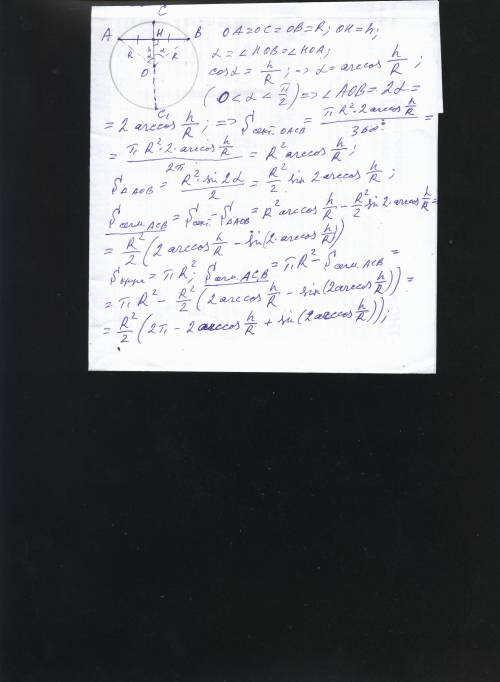 C
A H B
R h α R
O
C₁
OA=OC=OB=R; OH=h;
α=∠HOB=∠HOA;
cosα=h/R; ⇒ α=arccos h/R;
(0<α<π/2)⇒∠AOB=2α=
=2arccos h/R; ⇒ S сект. OACB = πR²·2arccos h/R / 360° =
= πR²·2·arccos h/R / 2π = R² arccos h/R;
S ΔAOB = R²·sin2α / 2 = R²/2 sin 2arccos h/R;
S сегм. ACB = S сект. - S ΔAOB = R² arccos h/R - R²/2 sin2·arccos h/R =
= R²/2 (2arccos h/R - sin(2·arccos h/R))
S круга = πR²; S сегм. AC₁B = πR² - S сегм. ACB =
= πR² - R²/2 (2arccos h/R - sin(2arccos h/R)) =
= R²/2 (2π - 2arccos h/R + sin(2arccos h/R));